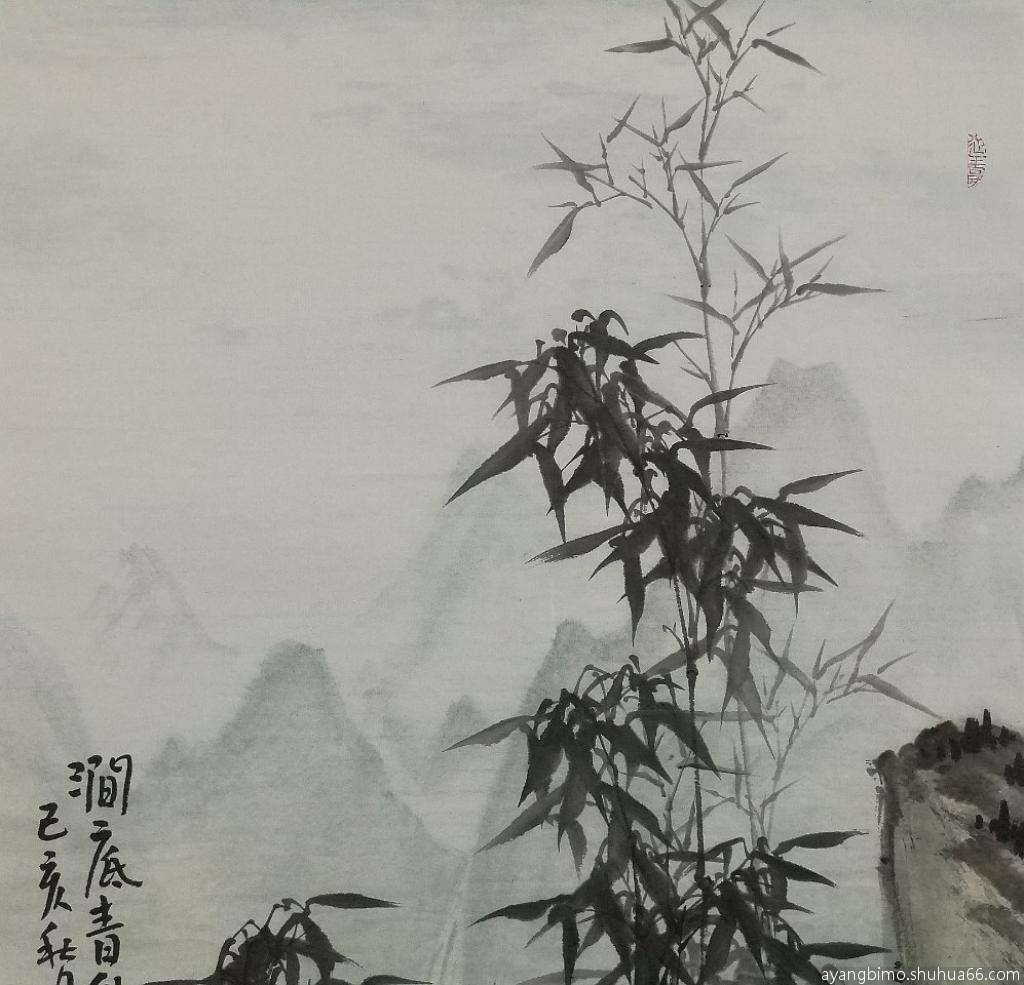 澗底青
己亥秋
ayangbimo.shuhua66.com